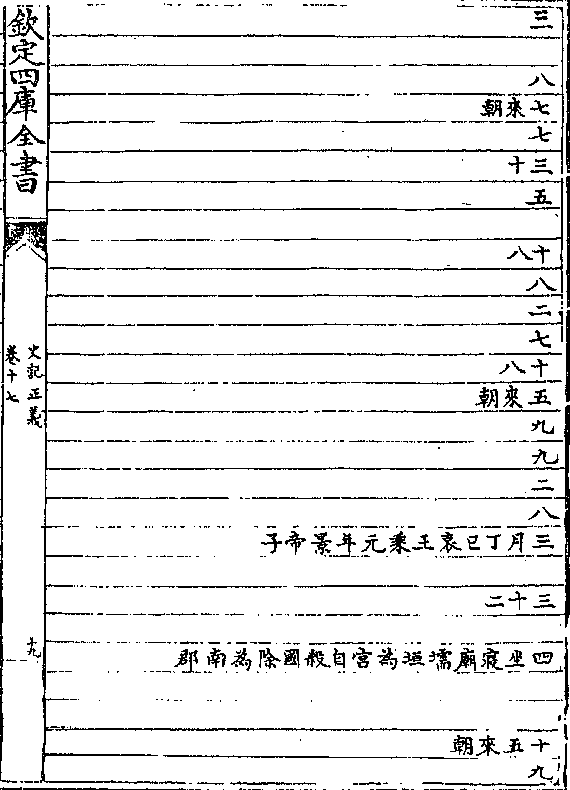 欽定四庫全書
史記正義
卷十七
十九
三
八
七來朝
七
三十
五
十八
八
二
七
十八
五來朝
九
九
二
八
三月丁巳哀王乘元年景帝子
三十二
四坐侵廟壖垣為宮自殺國除為南郡
十五來朝
九